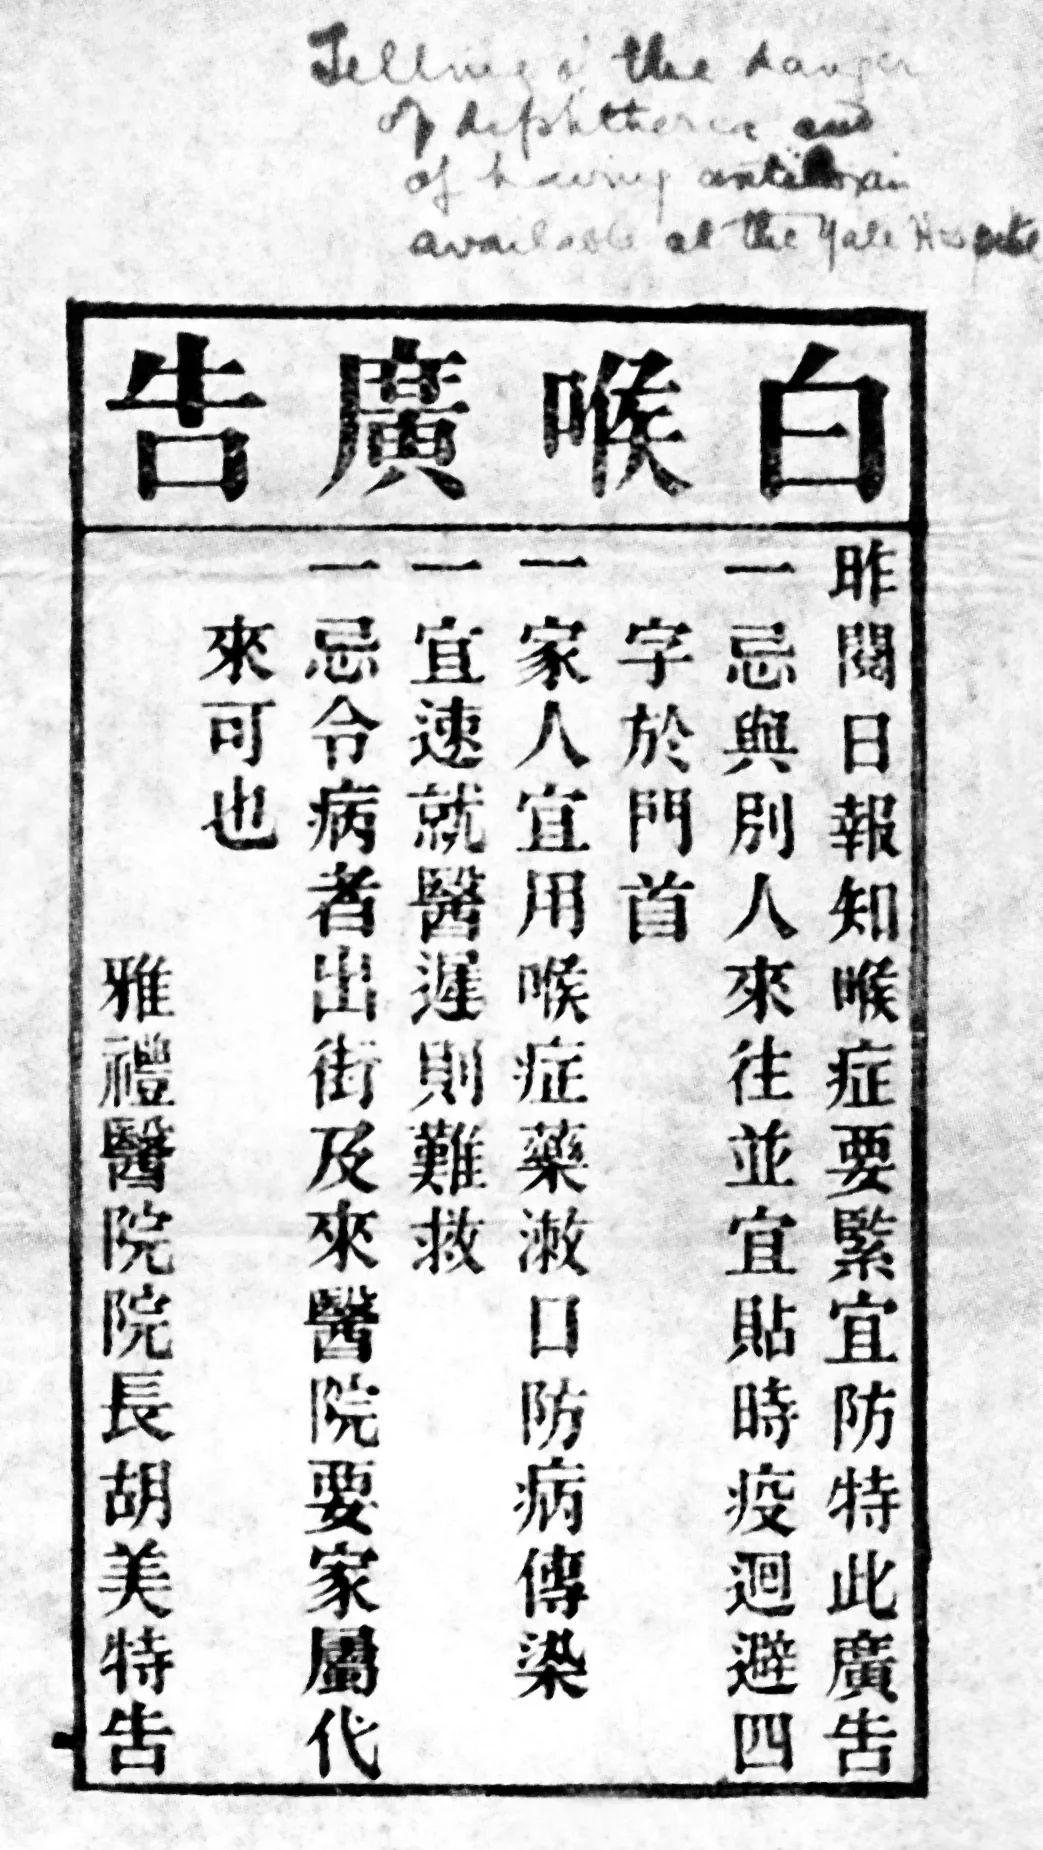 Telling of the danger
of diphtheria and
of having antitoxin
available at the Yale Hospital
白喉廣告
昨閱日報知喉症要緊宜防特此廣告
一忌與別人來往並宜貼時疫迴避四
字於門首
一家人宜用喉症藥漱口防病傳染
一宜速就醫遲則難救
一忌令病者出街及來醫院要家屬代
來可也
雅禮醫院院長胡美特告